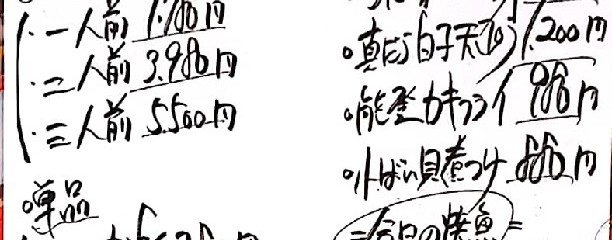 ・一人前 1.980円
・二人前 3.980円
・三人前 5.500円
○単品
○真だら白子天ぷら 1.200円
○能登カキフライ 980円
○小ばい貝煮つけ 880円
=今日の焼魚=